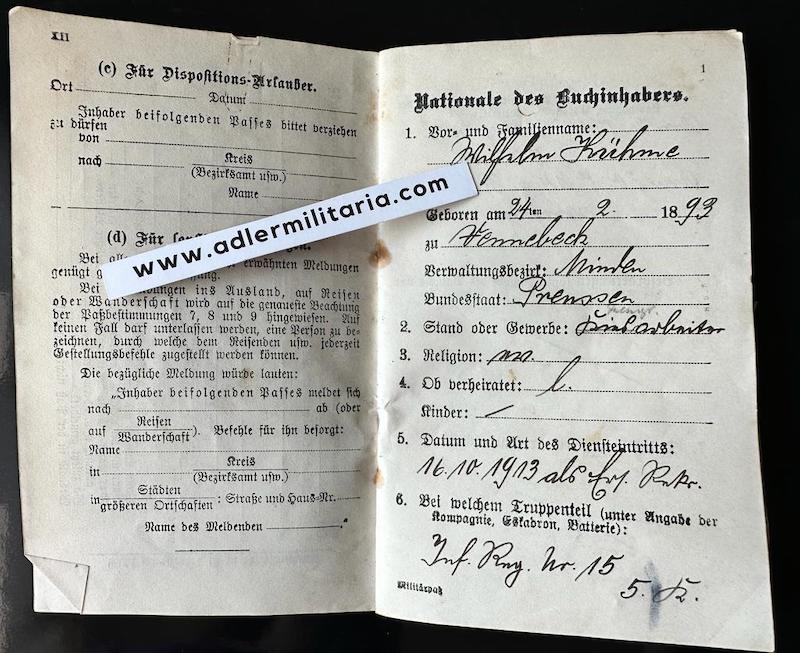 XII
(c) Für Dispositions-Urlauber.
Ort
Datum
Inhaber beifolgenden Passes bittet verziehen
zu dürfen
von
nach
Kreis
(Bezirksamt usw.)
Name
www.adlermilitaria.com
(d) Für
Bei
erwähnten Meldungen
genügt
Bei
ins Ausland, auf Reisen
oder Wanderschaft wird auf die genaueste Beachtung
der Paßbestimmungen 7, 8 und 9 hingewiesen. Auf
keinen Fall darf unterlassen werden, eine Person zu be-
zeichnen, durch welche dem Reisenden usw. jederzeit
Gestellungsbefehle zugestellt werden können.
Die bezügliche Meldung würde lauten:
„Inhaber beifolgenden Passes meldet sich
nach ab (oder
auf Reisen
Wanderschaft). Befehle für ihn besorgt:
Name
in Kreis
(Bezirksamt usw.)
in Städten
größeren Ortschaften: Straße und Haus-Nr.
Name des Meldenden ."
1
Nationale des Buchinhabers.
1. Vor- und Familienname:
Wilhelm Kühme
Geboren am 24ten 2. 1893
zu Vennebeck
Verwaltungsbezirk: Minden
Bundesstaat: Preussen
2. Stand oder Gewerbe:
3. Religion: ev.
4. Ob verheiratet: l.
Kinder: /
5. Datum und Art des Diensteintritts:
16.10.1913 als Ers. Rekr.
6. Bei welchem Truppenteil (unter Angabe der
Kompagnie, Eskadron, Batterie):
Inf. Reg. Nr. 15
5. K.
Militärpaß